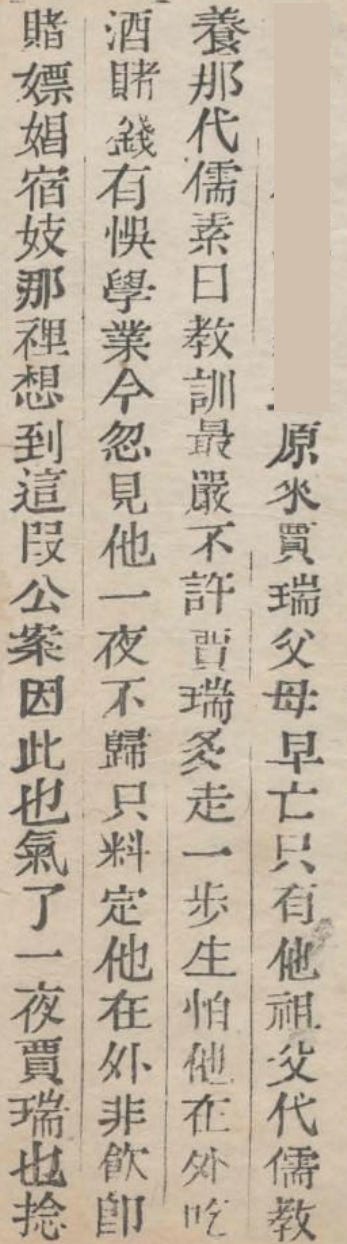 原來賈瑞父母早亡只有他祖父代儒教
養那代儒素日教訓最嚴不許賈瑞多走一步生怕他在外吃
酒賭錢有悞學業今忽見他一夜不歸只料定他在外非飲即
賭嫖娼宿妓那裡想到這段公案因此也氣了一夜賈瑞也捻